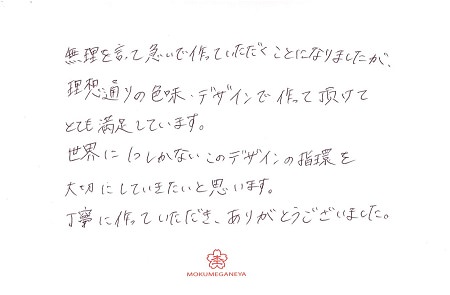 無理を言って急いで作っていただくことになりましたが、
理想通りの色味・デザインで作って頂けて
とても満足しています。
世界に1つしかないこのデザインの指環を
大切にしていきたいと思います。
丁寧に作っていただき、ありがとうございました。
MOKUMEGANEYA